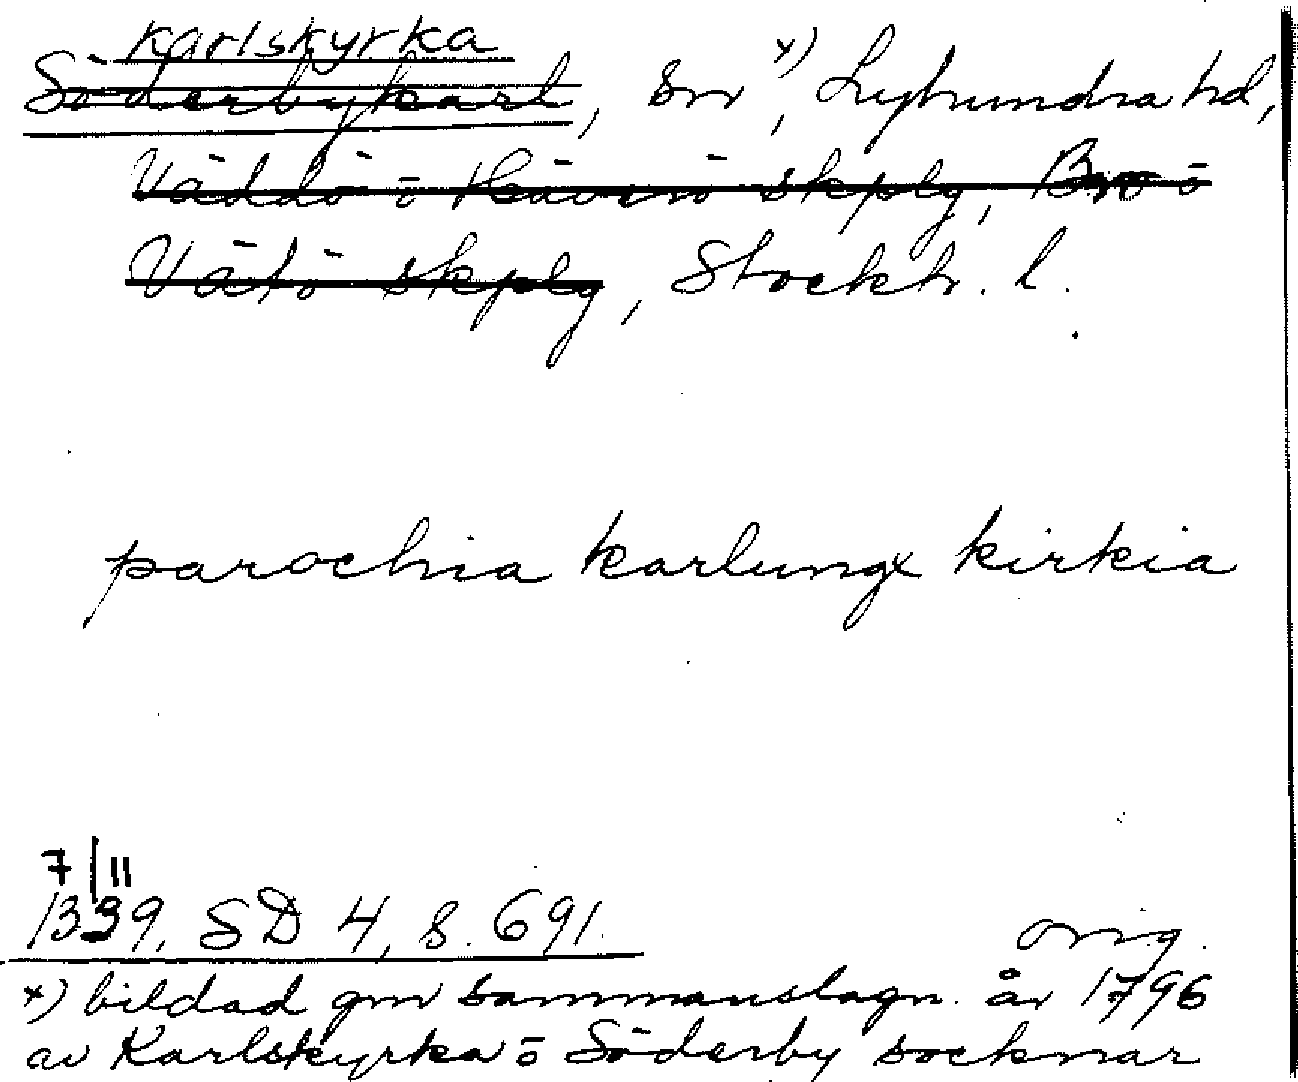 Karlskyrka
Söderbykarl, sn x), Lyhundra hd,
Väddö o Häverö skplg, Bro o
Vätö skplg, Stockh. l.
parochia karlungx kirkia
7/11
1339, SD 4, s. 691. orig.
x) bildad gm sammanslagn. år 1796
av Karlskyrka o Söderby socknar